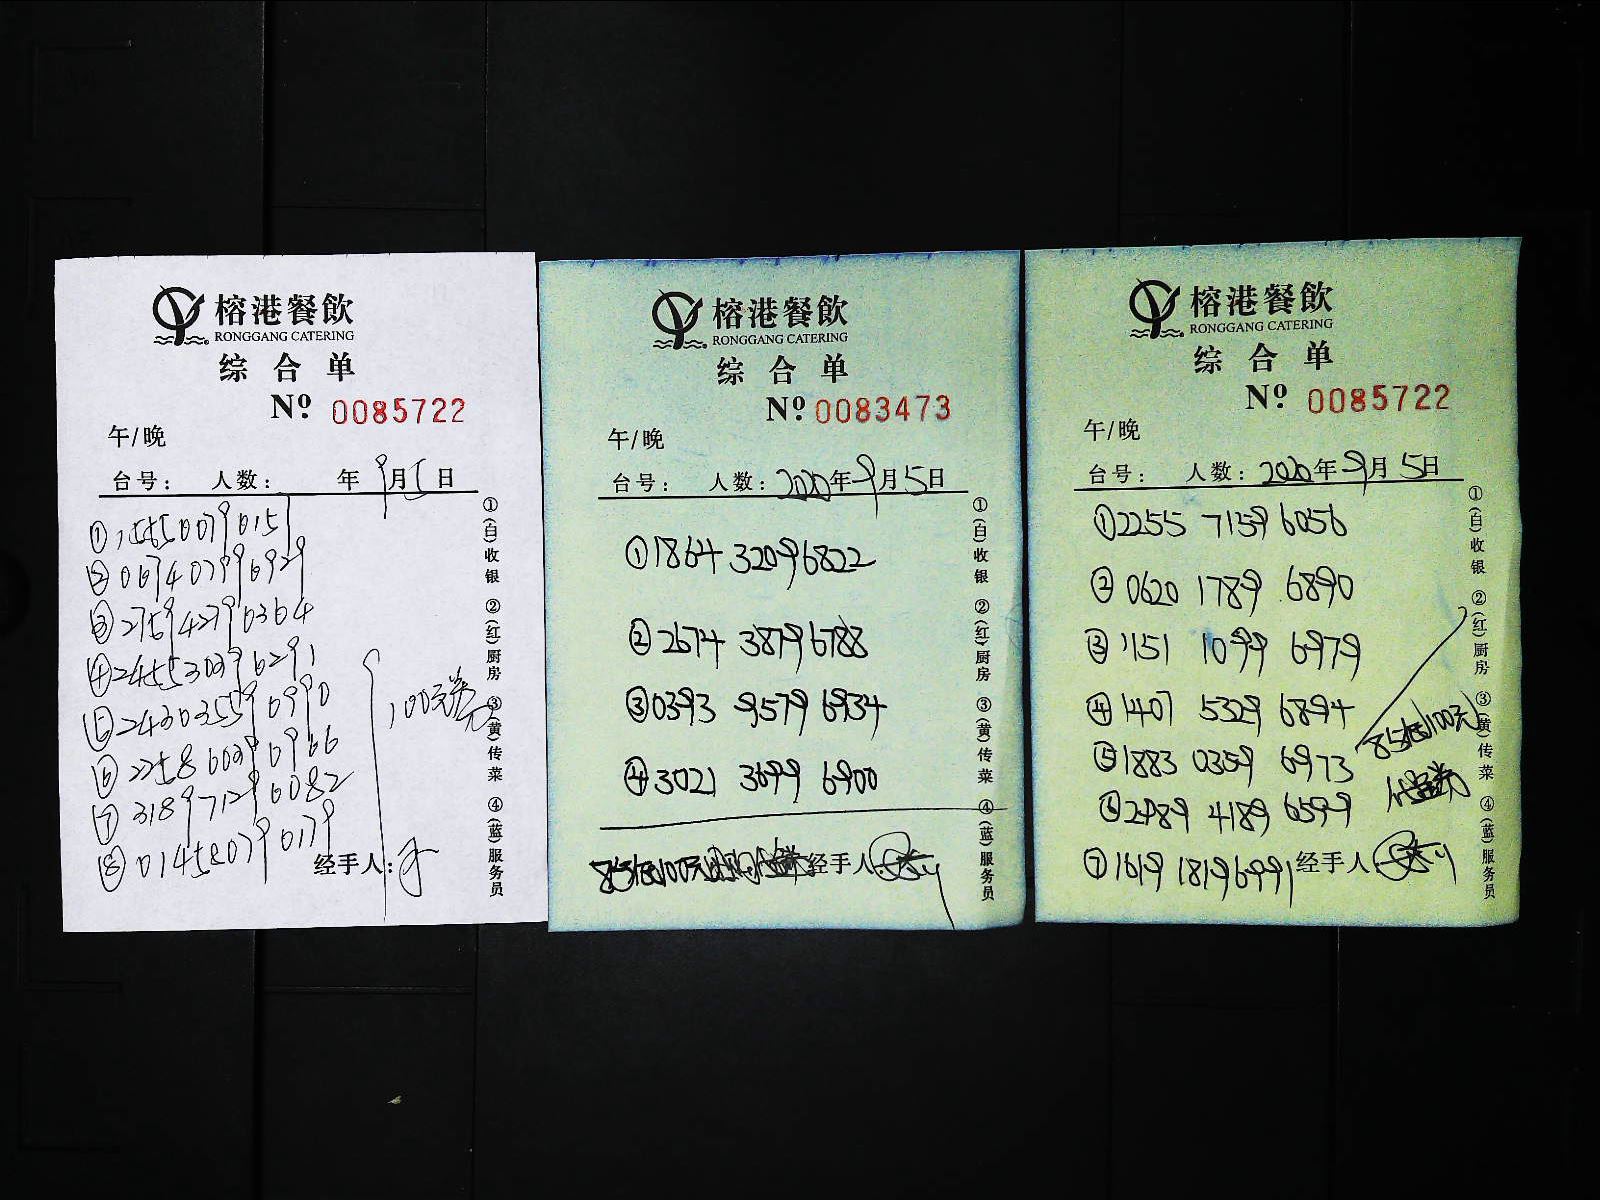 榕港餐飲
RONGGANG CATERING
综合单
Nº 0085722
午/晚
台号： 人数： 年9月5日
①155500790151
②069407996929
③275942790364
④245530396291
⑤243035590990
⑥225860390966
⑦318971296082
⑧014520790179
100元券
经手人：
①(白)收银 ②(红)厨房 ③(黄)传菜 ④(蓝)服务员
榕港餐飲
RONGGANG CATERING
综合单
Nº 0083473
午/晚
台号： 人数：2020年9月5日
①1864 3209 6822
②2674 3879 6788
③0393 9579 6934
④3021 3699 6900
经手人
①(白)收银 ②(红)厨房 ③(黄)传菜 ④(蓝)服务员
榕港餐飲
RONGGANG CATERING
综合单
Nº 0085722
午/晚
台号： 人数：2020年9月5日
①2255 7159 6056
②0620 1789 6890
③1151 1099 6979
④1407 5329 6894
⑤1883 0359 6973
⑥2989 4189 6599
⑦1619 1819 6991
100元
经手人
①(白)收银 ②(红)厨房 ③(黄)传菜 ④(蓝)服务员